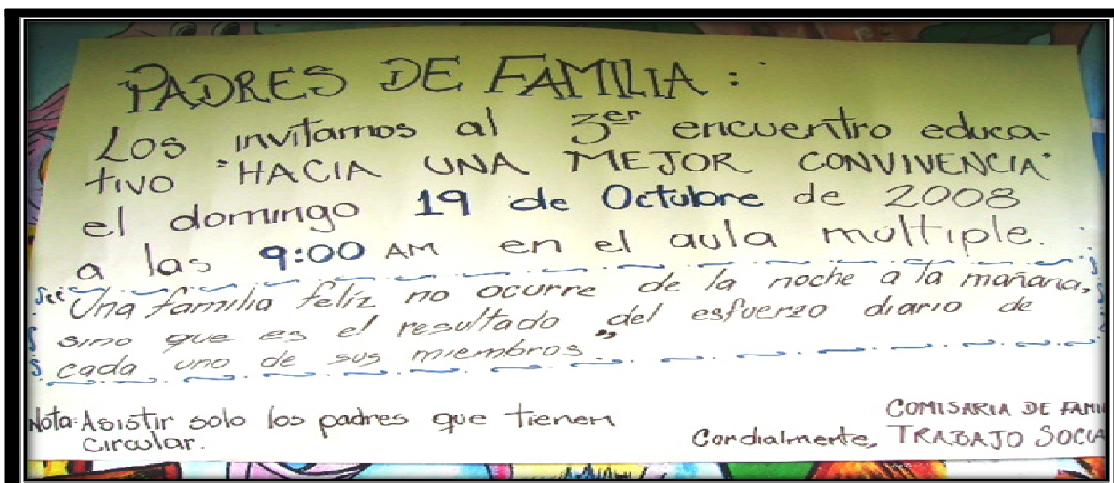 PADRES DE FAMILIA:
Los invitamos al 3er encuentro educa-
tivo "HACIA UNA MEJOR CONVIVENCIA"
el domingo 19 de Octubre de 2008
a las 9:00 AM en el aula multiple.
"Una familia feliz no ocurre de la noche a la mañana,
sino que es el resultado del esfuerzo diario de
cada uno de sus miembros."
Nota: Asistir solo los padres que tienen
circular.
COMISARIA DE FAMI
Cordialmente, TRABAJO SOCIA